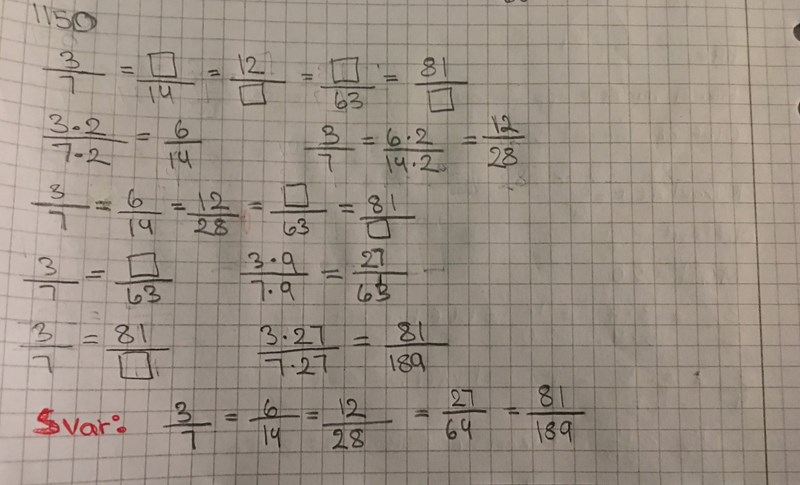 1150
3/7 = □/14 = 12/□ = □/63 = 81/□
3·2/7·2 = 6/14 3/7 = 6·2/14·2 = 12/28
3/7 = 6/14 = 12/28 = □/63 = 81/□
3/7 = □/63 3·9/7·9 = 27/63
3/7 = 81/□ 3·27/7·27 = 81/189
Svar: 3/7 = 6/14 = 12/28 = 27/64 = 81/189